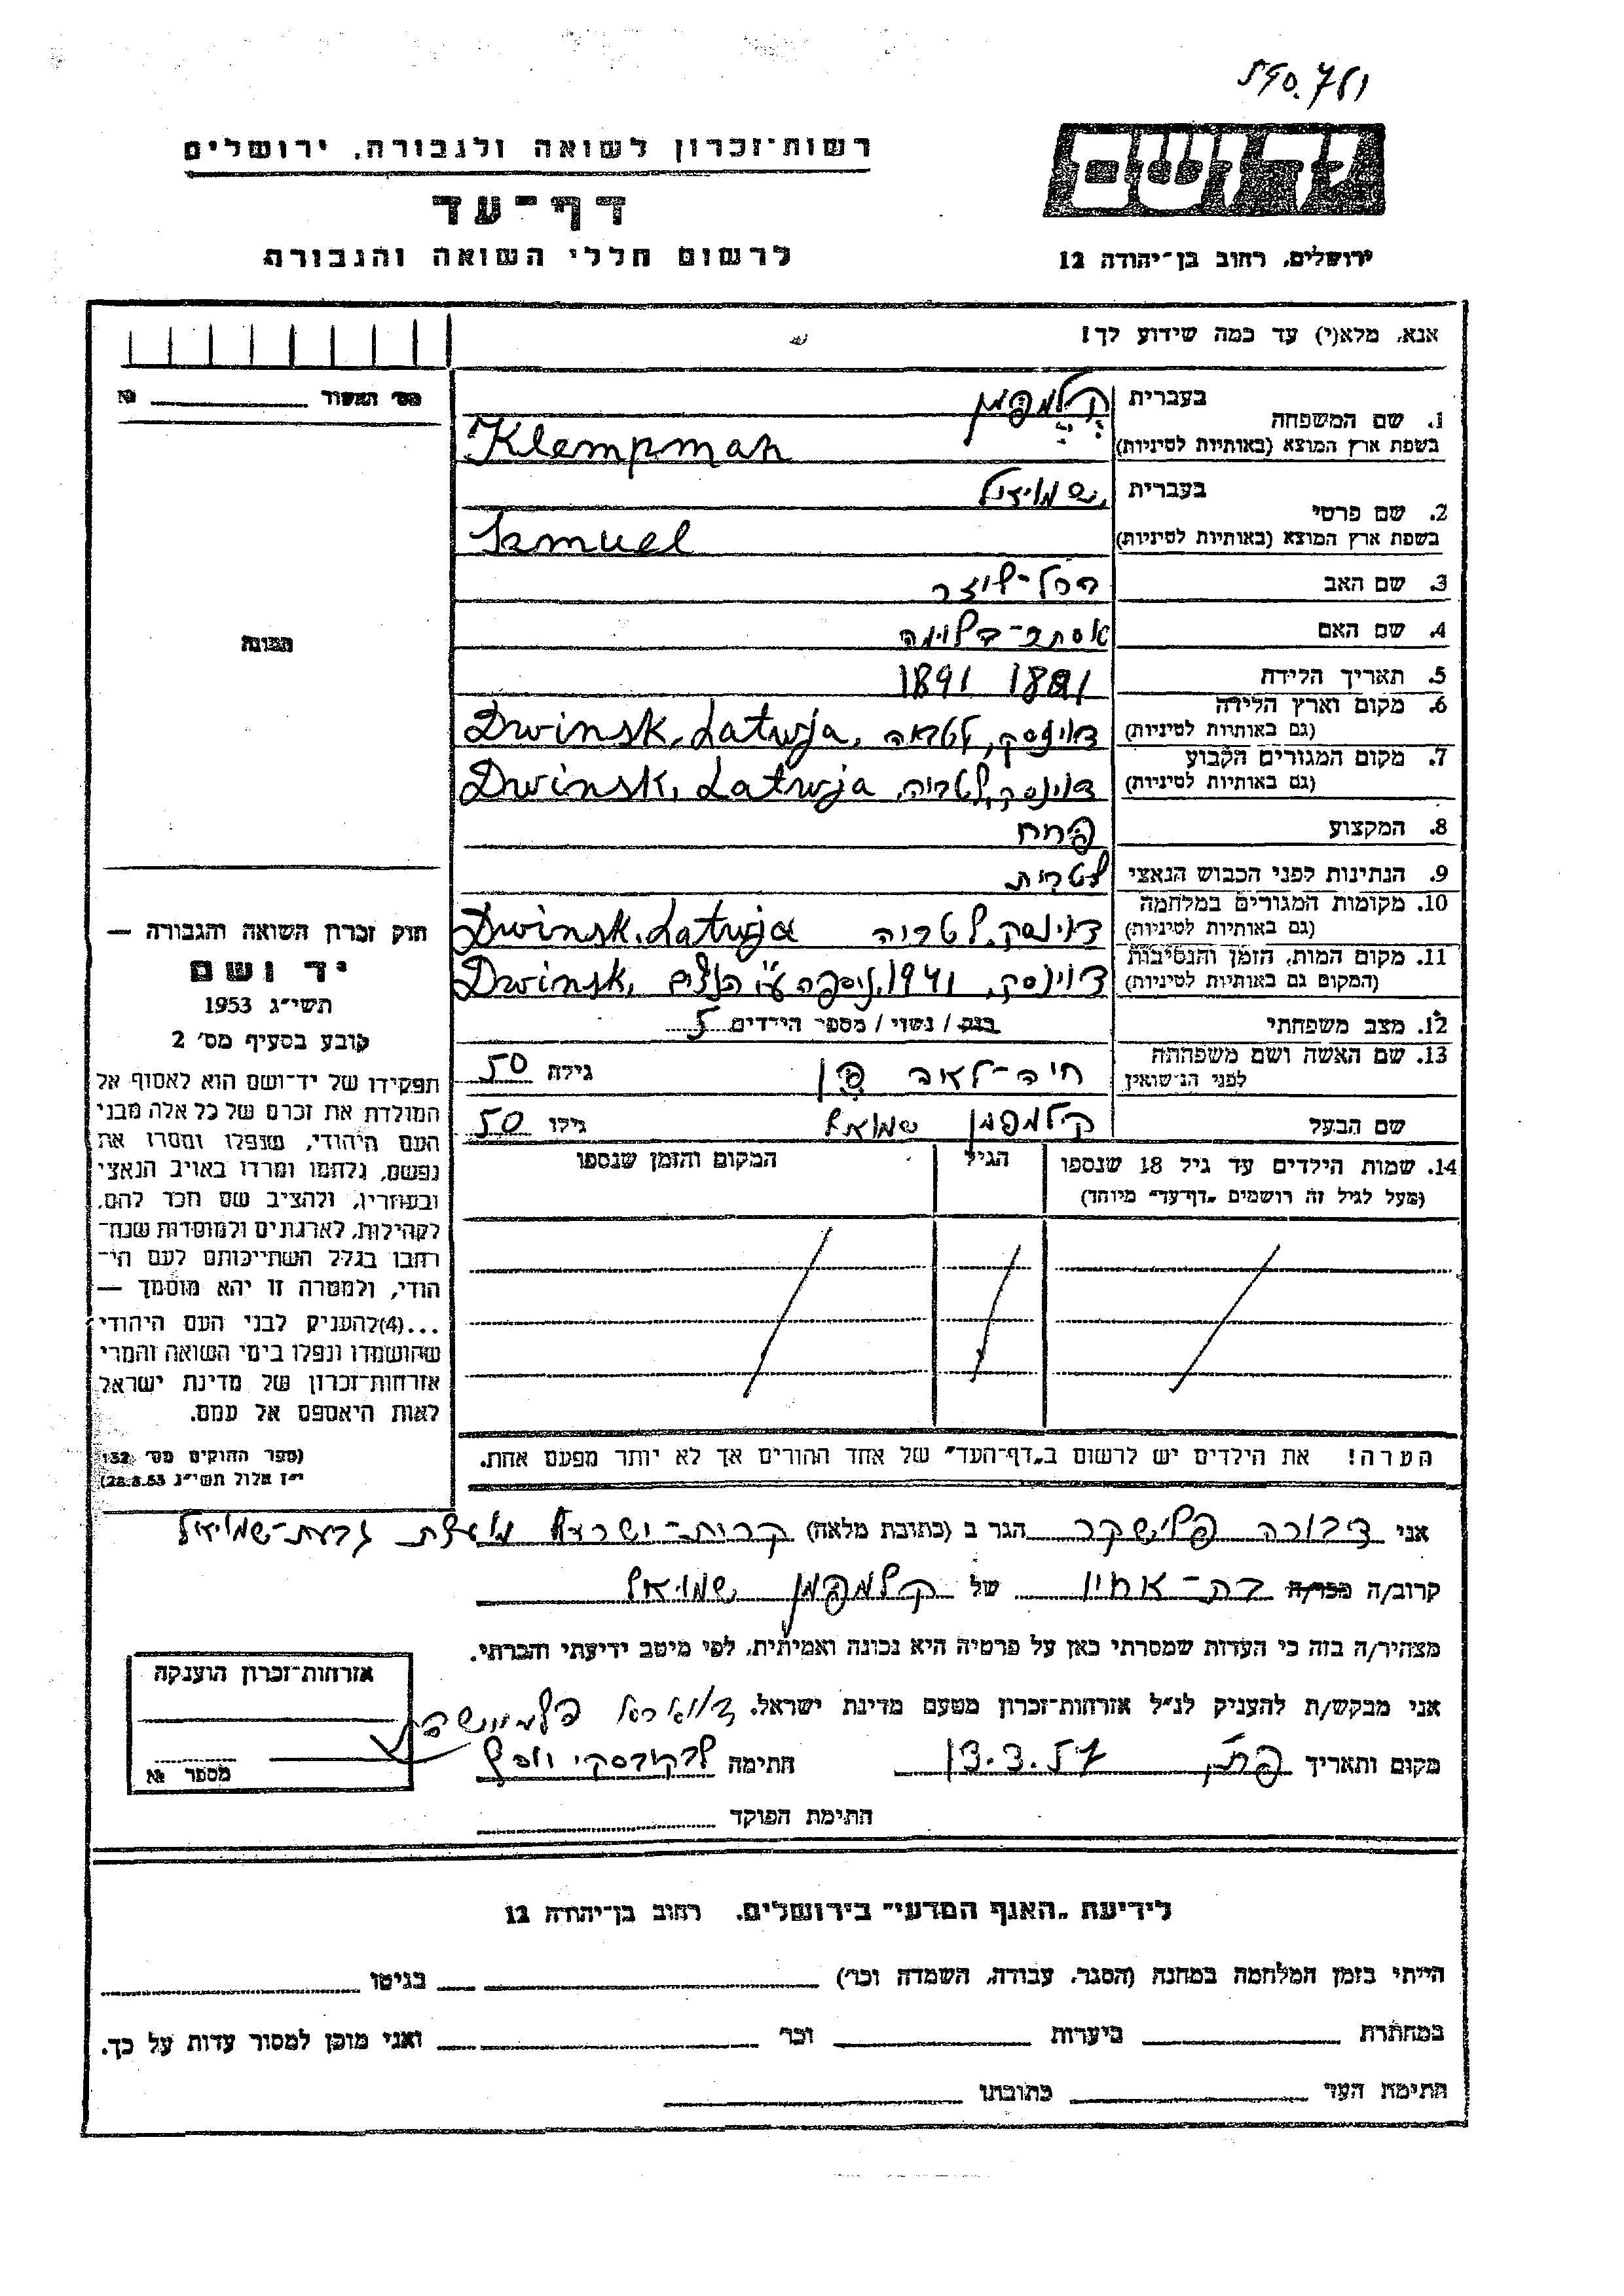 590.781
יד ושם
רשות-זכרון לשואה ולגבורה, ירושלים
דף-עד
לרשום חללי השואה והגבורה
ירושלים, רחוב בן-יהודה 12
אנא, מלא(י) עד כמה שידוע לך!
מס' האשור №
1. שם המשפחה
בעברית קלמפמן
בשפת ארץ המוצא (באותיות לטיניות) Klempman
2. שם פרטי
בעברית שמואל
בשפת ארץ המוצא (באותיות לטיניות) Szmuel
3. שם האב
4. שם האם
5. תאריך הלידה 1891
6. מקום וארץ הלידה
(גם באותיות לטיניות) דוינסק, לטביה, Dwinsk, Latwja
7. מקום המגורים הקבוע
(גם באותיות לטיניות) דוינסק, לטביה, Dwinsk, Latwja
8. המקצוע פחח
9. הנתינות לפני הכבוש הנאצי לטבית
10. מקומות המגורים במלחמה
(גם באותיות לטיניות) דוינסק, לטביה Dwinsk, Latwja
11. מקום המות, הזמן והנסיבות
(המקום גם באותיות לטיניות) דוינסק, 1941, ניספה ע"י הנאצים Dwinsk,
12. מצב משפחתי רווק / נשוי / מספר הילדים 5
13. שם האשה ושם משפחתה
לפני הנשואין חיה-לאה גילה 50
שם הבעל קלמפמן שמואל גילו 50
14. שמות הילדים עד גיל 18 שנספו
(מעל לגיל זה רושמים "דף-עד" מיוחד)
הגיל
המקום והזמן שנספו
הערה! את הילדים יש לרשום ב"דף-העד" של אחד ההורים אך לא יותר מפעם אחת.
תמונה
חוק זכרון השואה והגבורה —
יד ושם
תשי"ג 1953
קובע בסעיף מס' 2
תפקידו של יד-ושם הוא לאסוף אל
המולדת את זכרם של כל אלה מבני
העם היהודי, שנפלו ומסרו את
נפשם, נלחמו ומרדו באויב הנאצי
ובעוזריו, ולהציב שם וזכר להם,
לקהילות, לארגונים ולמוסדות שנח-
רבו בגלל השתייכותם לעם הי-
הודי, ולמטרה זו יהא מוסמך —
...(4) להעניק לבני העם היהודי
שהושמדו ונפלו בימי השואה והמרי
אזרחות-זכרון של מדינת ישראל
לאות היאספם אל עמם.
(ספר החוקים מס' 132,
י"ז אלול תשי"ג 28.8.53)
אני דבורה פלישקר הגר ב (כתובת מלאה) קרית-ישראל גבעת-שמואל
קרוב/ה מכר/ה בת-אחיו של קלמפמן שמואל
מצהיר/ה בזה כי העדות שמסרתי כאן על פרטיה היא נכונה ואמיתית, לפי מיטב ידיעתי והכרתי.
אני מבקש/ת להעניק לנ"ל אזרחות-זכרון מטעם מדינת ישראל.
מקום ותאריך 13.3.57 חתימה
חתימת הפוקד
אזרחות-זכרון הוענקה
מספר №
לידיעת "האגף המדעי" בירושלים, רחוב בן-יהודה 12
הייתי בזמן המלחמה במחנה (הסגר, עבודה, השמדה וכו') בגיטו
במחתרת ביערות וכו' ואני מוכן למסור עדות על כך.
חתימת העד כתובתו